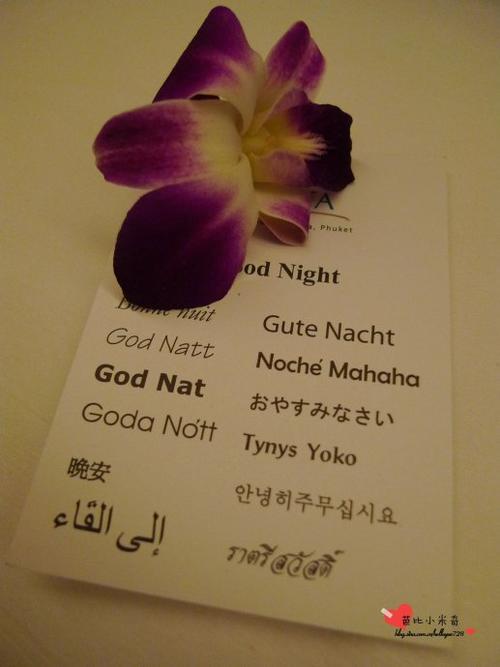 Phuket
Good Night
Bonne nuit
Gute Nacht
God Natt
Noché Mahaha
God Nat
おやすみなさい
Goda Nótt
Tynys Yoko
晚安
안녕히주무십시요
إلى القاء
ราตรีสวัสดิ์
芭比小米奇